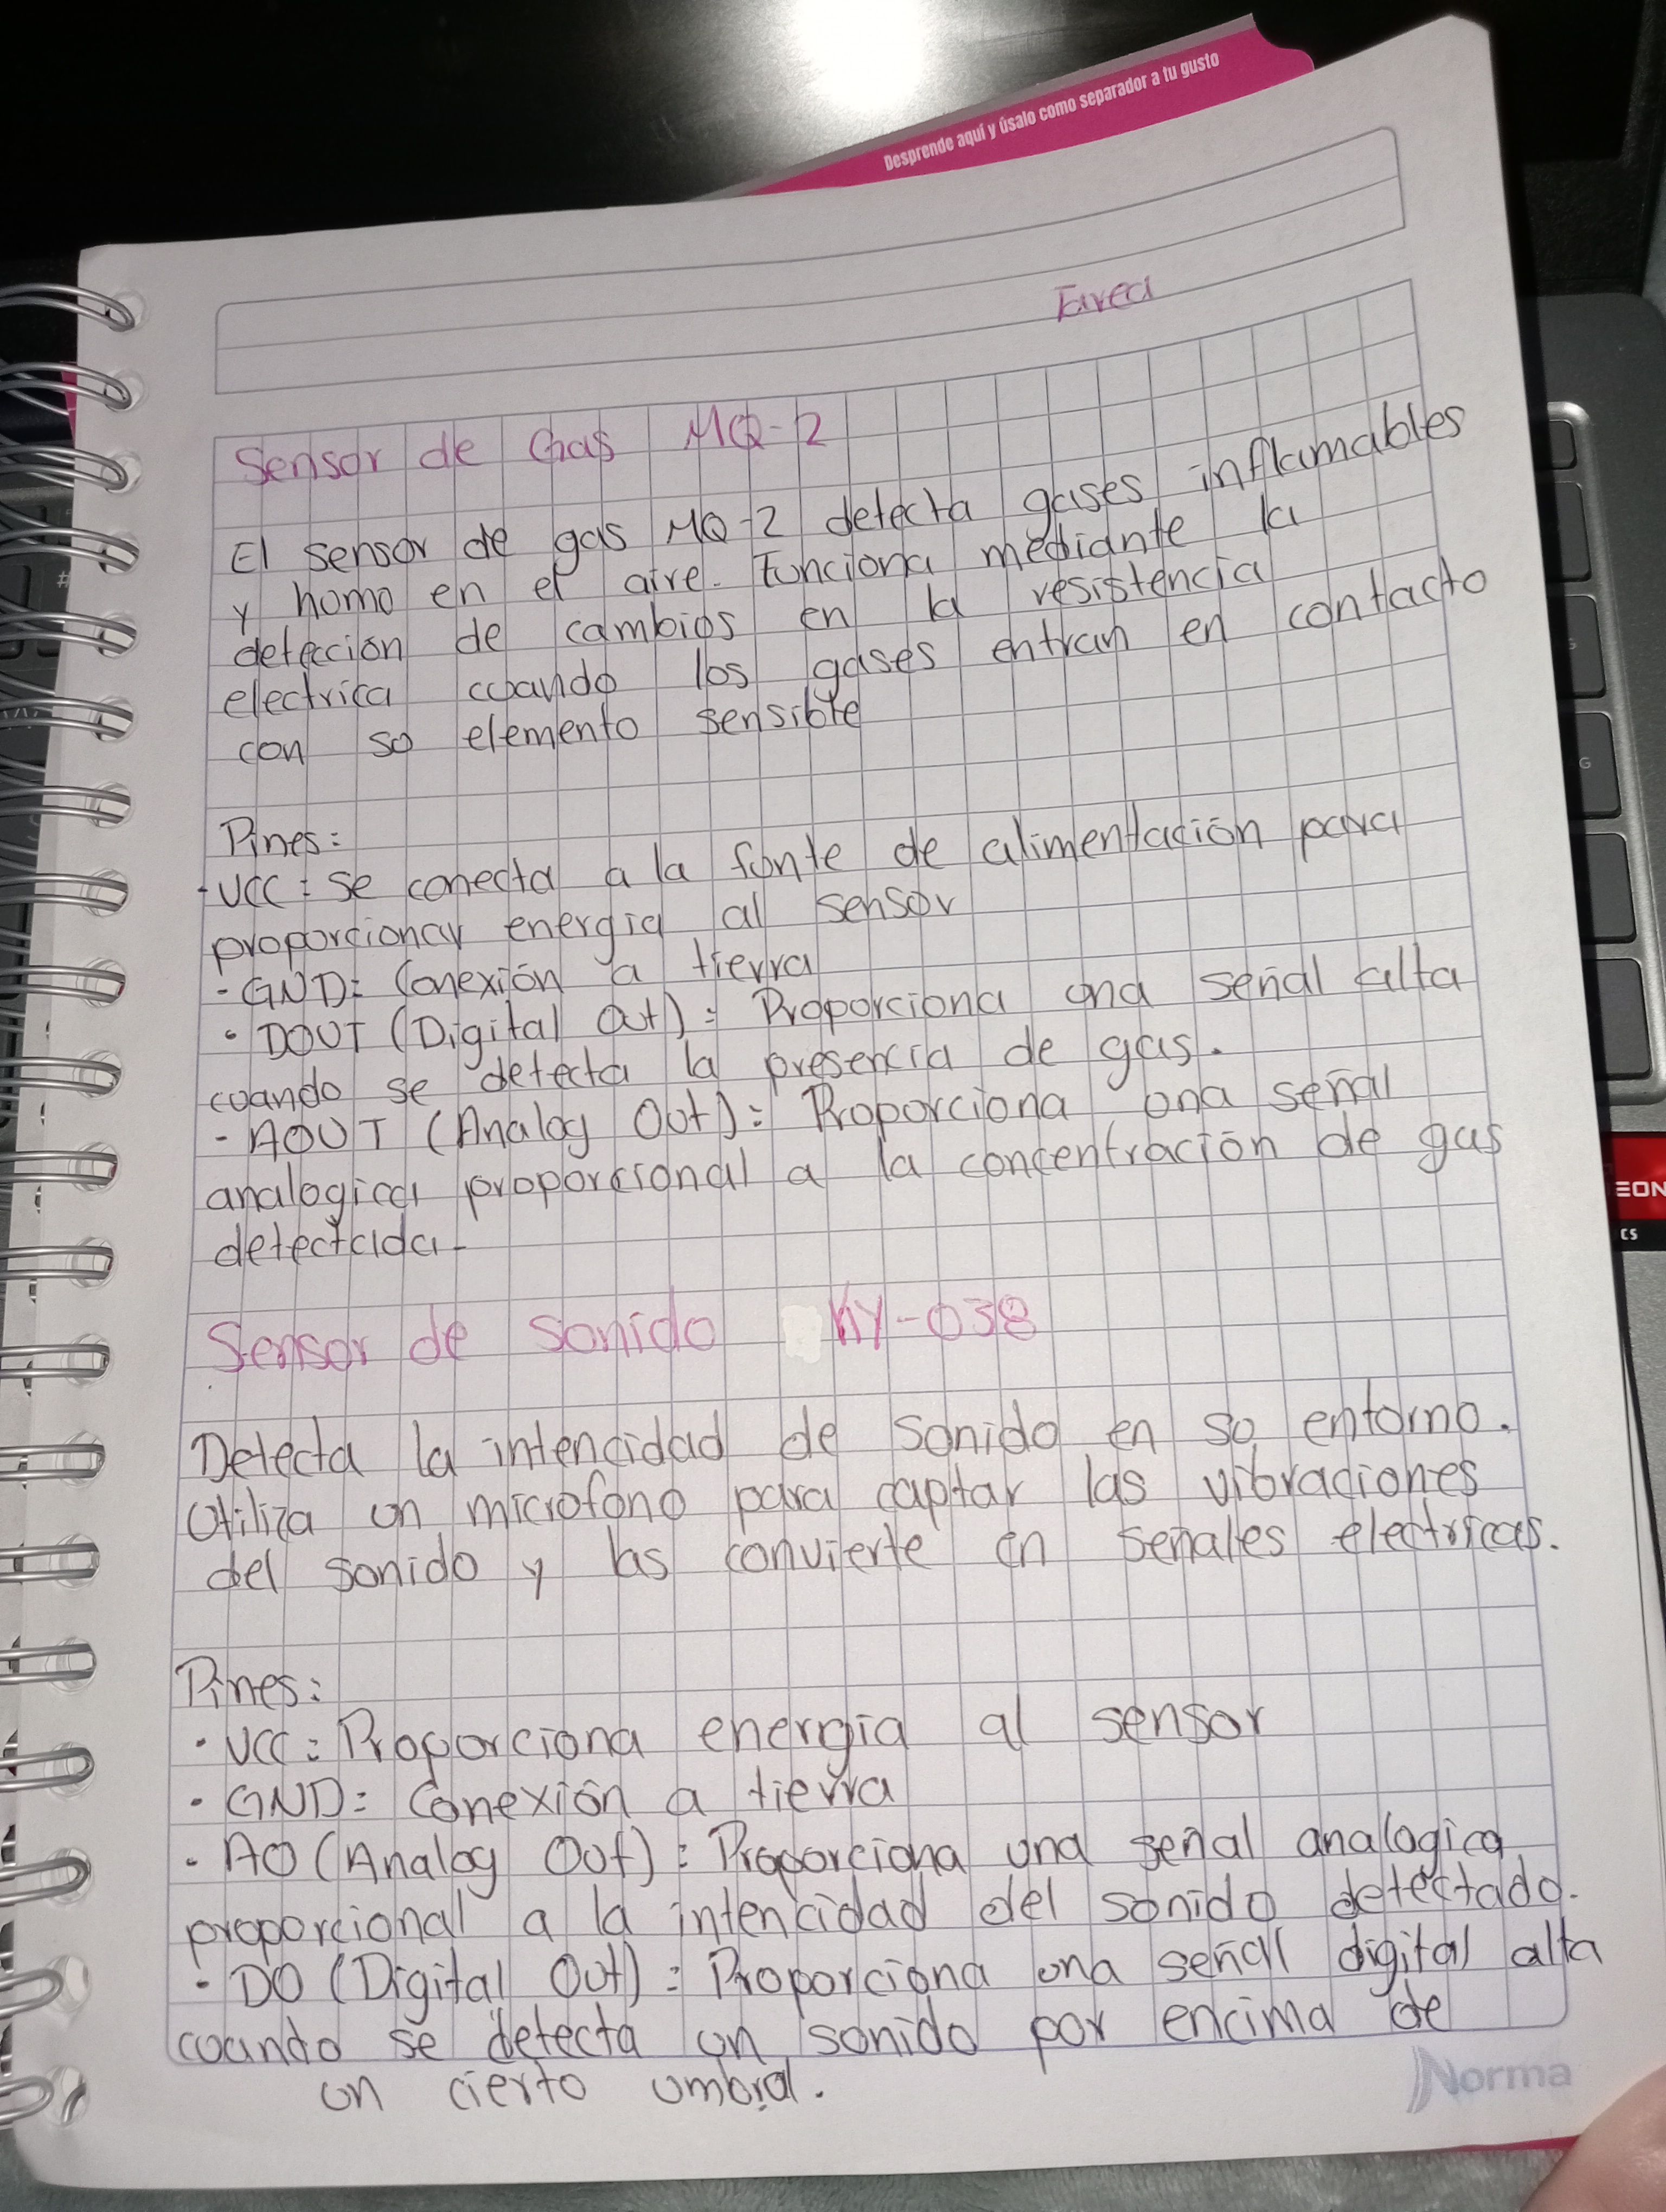 Desprende aquí y úsalo como separador a tu gusto
Tarea
Sensor de Gas MQ-2
El sensor de gas MQ-2 detecta gases inflamables
y humo en el aire. Funciona mediante la
detección de cambios en la resistencia
electrica cuando los gases entran en contacto
con su elemento sensible
Pines:
·VCC: Se conecta a la fuente de alimentación para
proporcionar energia al sensor
- GND: Conexión a tierra
· DOUT (Digital Out): Proporciona una señal alta
cuando se detecta la presencia de gas.
- AOUT (Analog Out): Proporciona una señal
analogica proporcional a la concentración de gas
detectada.
Sensor de Sonido KY-038
Detecta la intencidad de sonido en su entorno.
Utiliza un microfono para captar las vibraciones
del sonido y las convierte en señales electricas.
Pines:
· VCC: Proporciona energia al sensor
· GND: Conexión a tierra
· AO (Analog Out): Proporciona una señal analogica
proporcional a la intencidad del sonido detectado.
· DO (Digital Out): Proporciona una señal digital alta
cuando se detecta un sonido por encima de
un cierto umbral.
Norma
G
EON
CS